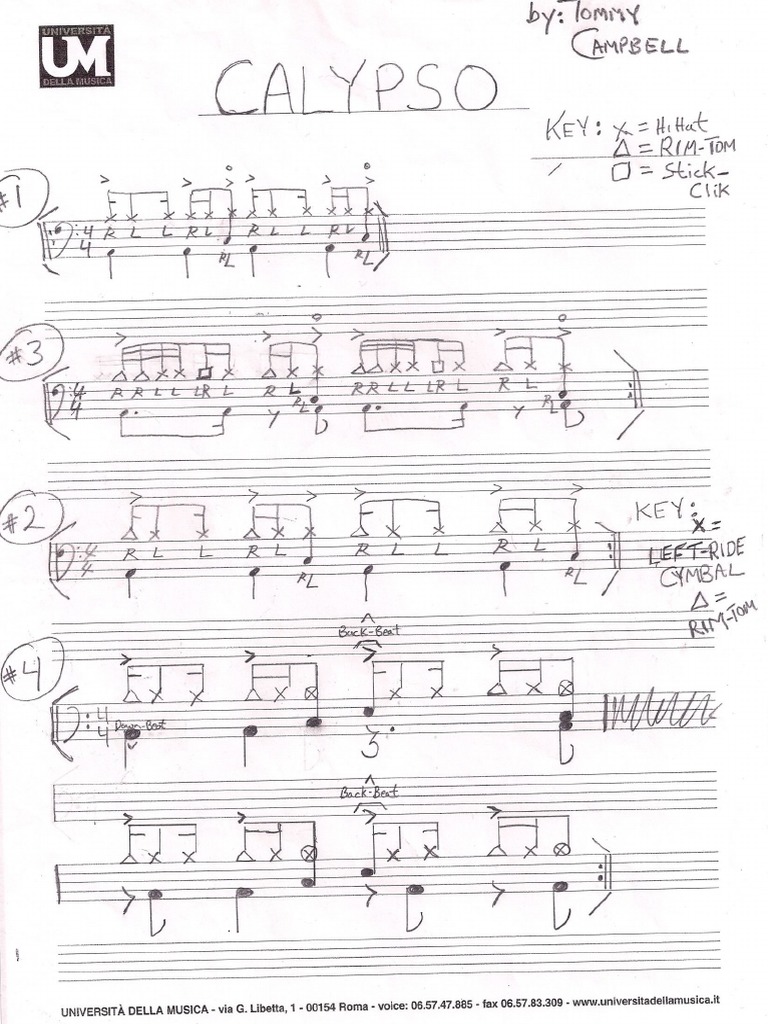 UNIVERSITÀ
UM
DELLA MUSICA
by: TOMMY
CAMPBELL
CALYPSO
KEY: X = HiHat
△ = RIM-TOM
□ = Stick-
Clik
#1
R L L R L R L L R L
4
4
RL RL
#3
R R L L LR L R L R R L L LR L R L
4
4
RL RL
#2
KEY:
X =
LEFT-RIDE
CYMBAL
△ =
RIM-TOM
R L L R L R L L R L
4
4
RL RL
Back-Beat
#4
4
4
Down-Beat
Back-Beat
UNIVERSITÀ DELLA MUSICA - via G. Libetta, 1 - 00154 Roma - voice: 06.57.47.885 - fax 06.57.83.309 - www.universitadellamusica.it